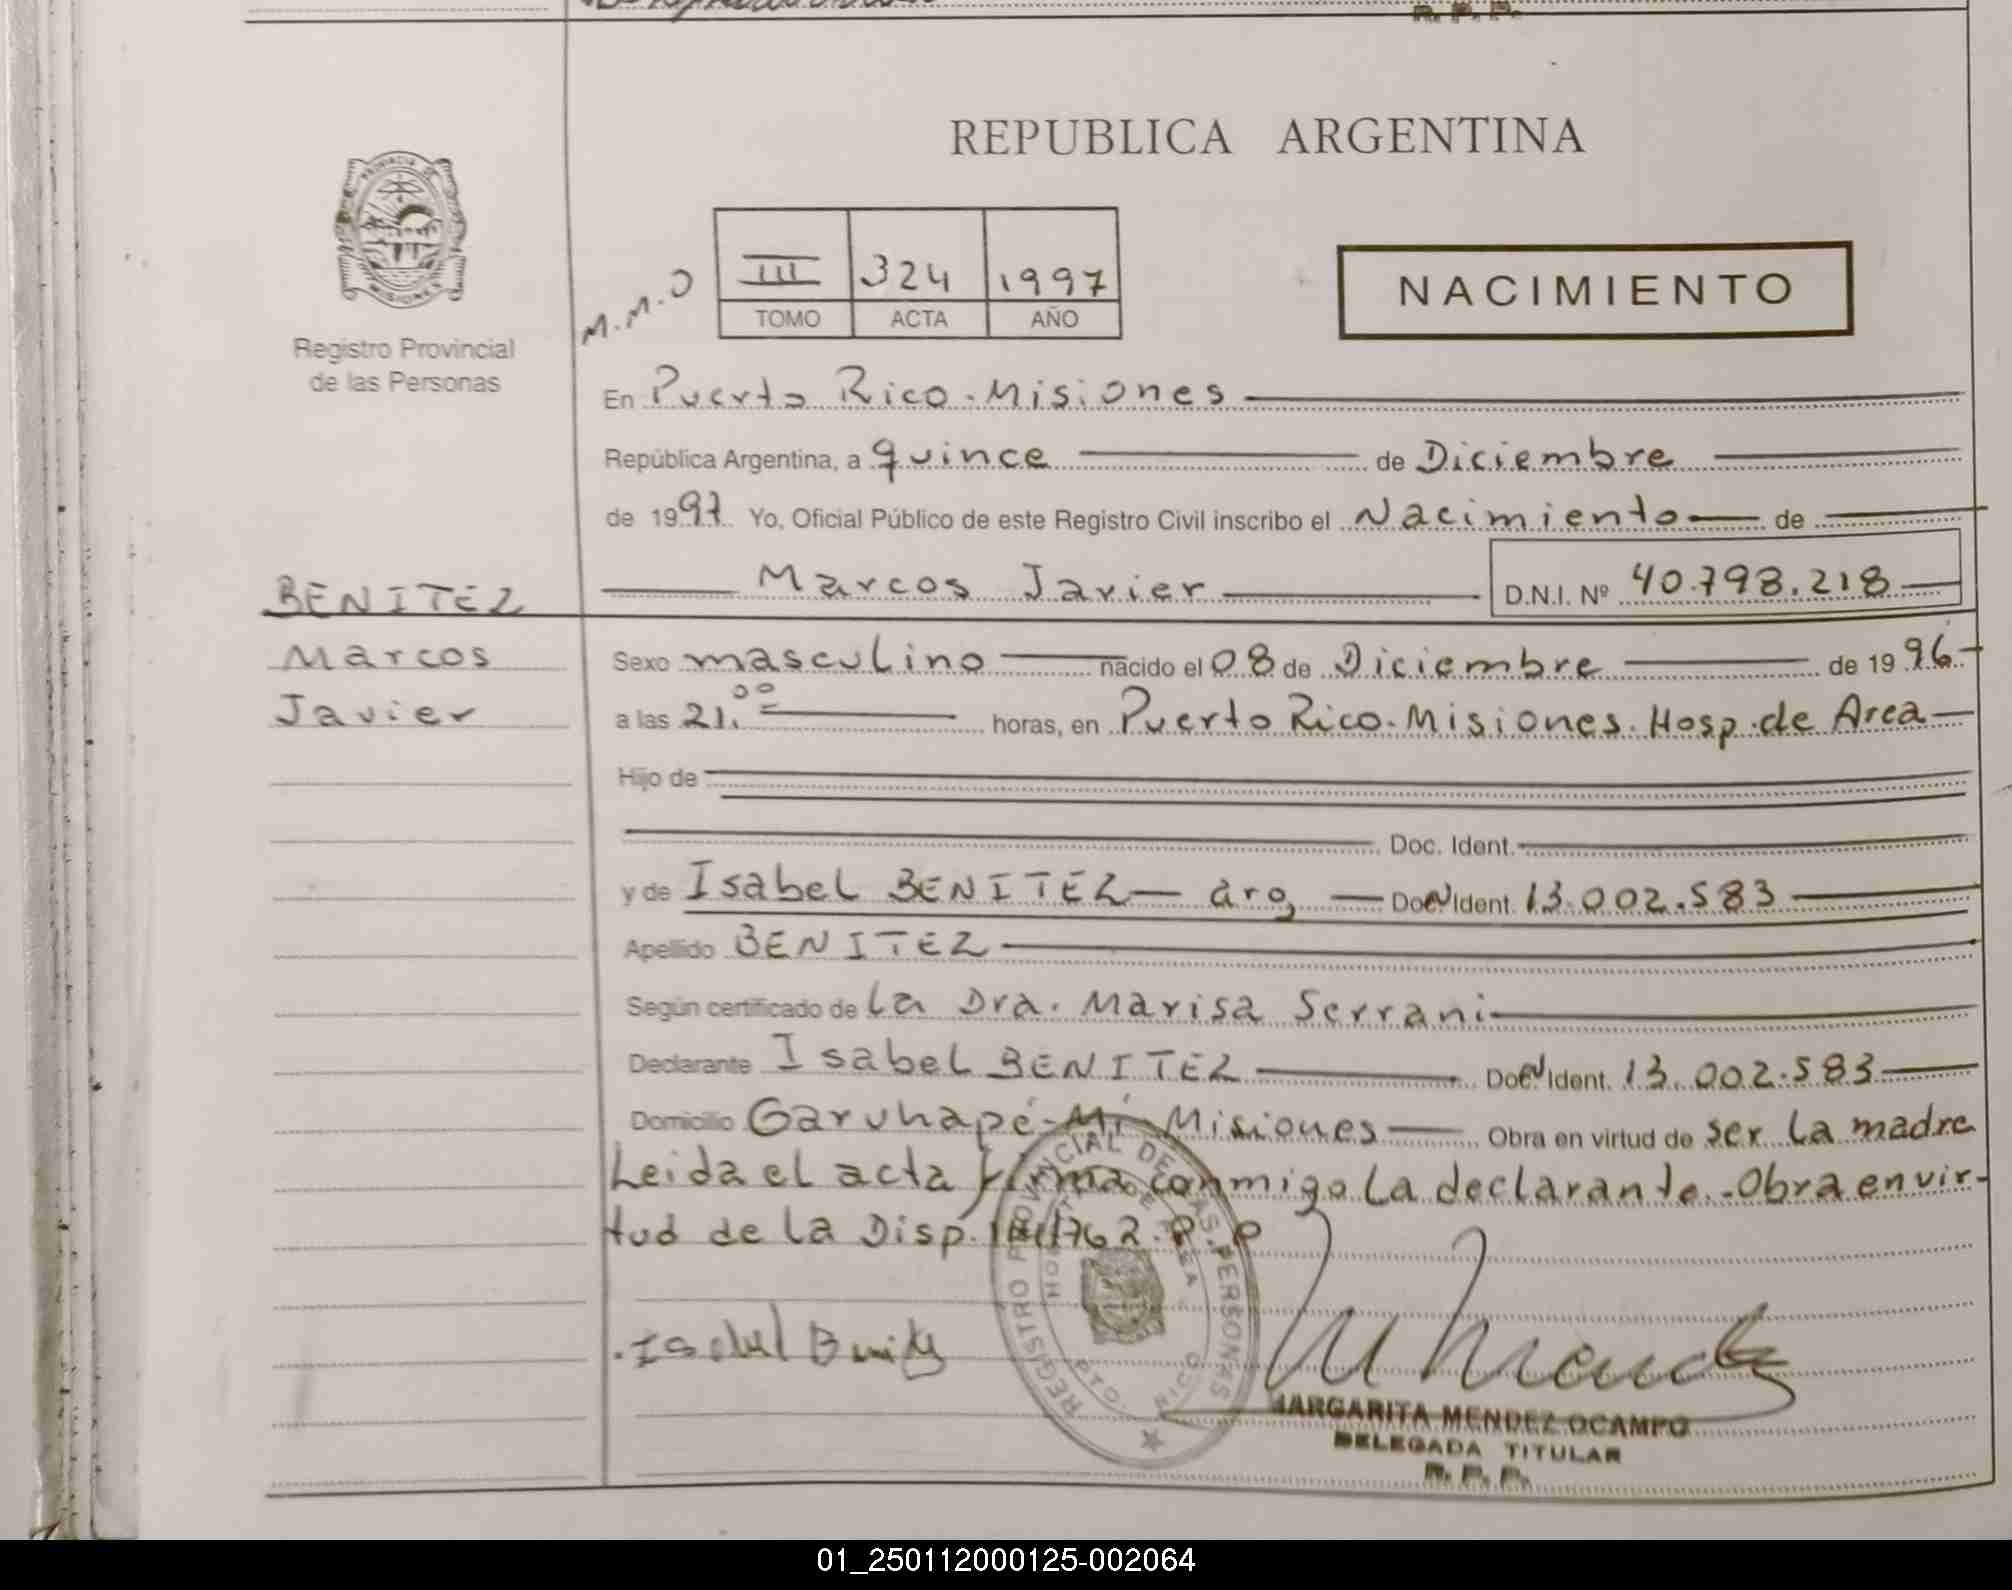 R. P. P.
REPUBLICA ARGENTINA
PROVINCIA DE
MISIONES
Registro Provincial
de las Personas
M.M.O
III 324 1997
TOMO ACTA AÑO
NACIMIENTO
En Puerto Rico - Misiones
República Argentina, a quince de Diciembre
de 1997 Yo, Oficial Público de este Registro Civil inscribo el Nacimiento de
BENITEZ
Marcos Javier D.N.I. Nº 40.798.218
Marcos
Sexo masculino nacido el 08 de Diciembre de 1996
Javier
a las 21.00 horas, en Puerto Rico - Misiones. Hosp. de Area
Hijo de
Doc. Ident.
y de Isabel BENITEZ - arg Doc. Ident. 13.002.583
Apellido BENITEZ
Según certificado de la Dra. Marisa Serrani
Declarante Isabel BENITEZ Doc. Ident. 13.002.583
Domicilio Garuhapé - Mí Misiones Obra en virtud de ser la madre
Leida el acta firma conmigo la declarante. - Obra en vir-
tud de la Disp.
REGISTRO PROVINCIAL DE LAS PERSONAS
PTO. RICO
Isabel Benitez
MARGARITA MENDEZ OCAMPO
DELEGADA TITULAR
R. P. P.
01_250112000125-002064